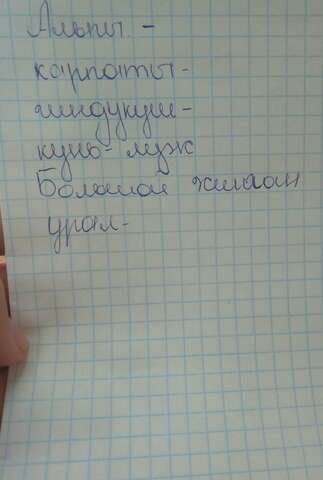 Альпы -
карпаты -
гиндукуш -
кунь-лузк
Большой хинган
урал -